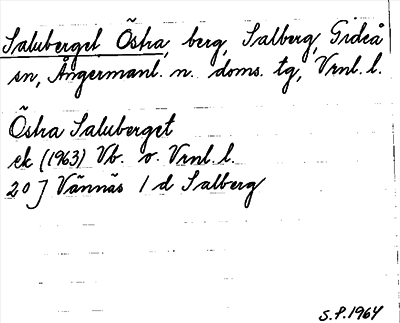 Saluberget Östra, berg, Salberg, Gideå
sn, Ångermanl. n. doms. tg, Vrnl. l.
Östra Saluberget
ek (1963) Vb. o. Vrnl. l.
20 J Vännäs 1 d Salberg
S.P. 1964